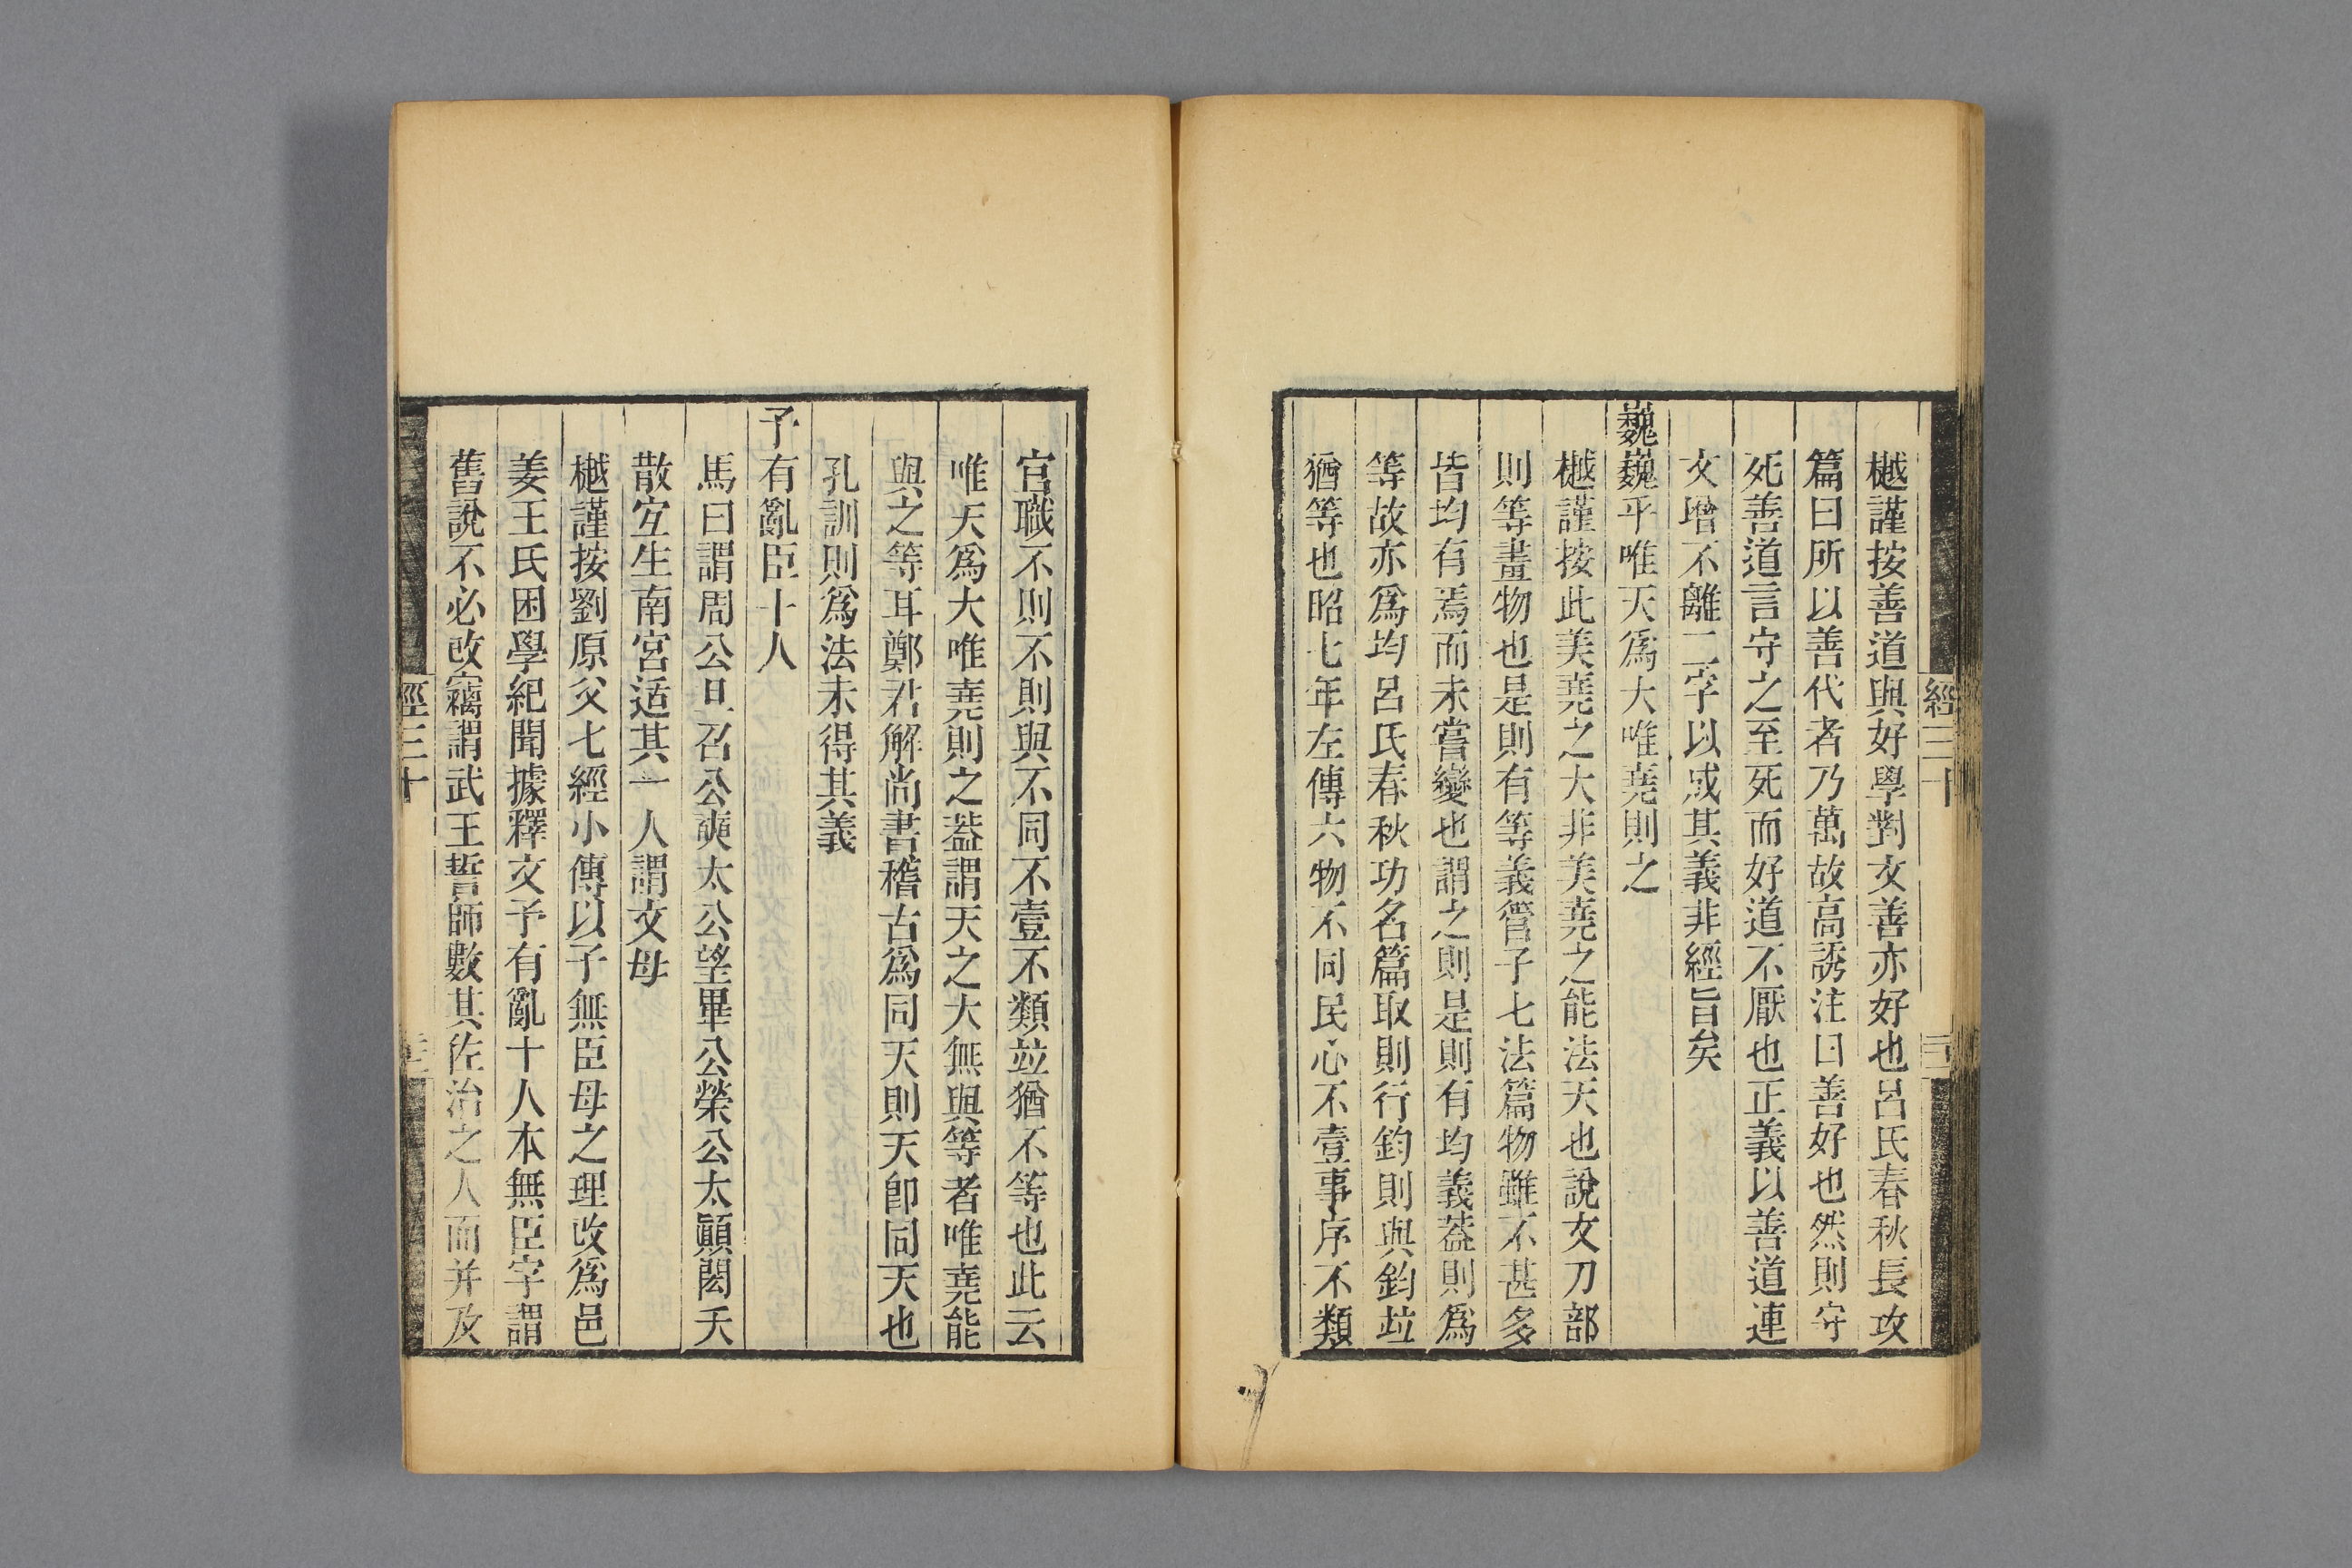 經三十
樾謹按善道與好學對文善亦好也呂氏春秋長攻
篇曰所以善代者乃萬故高誘注曰善好也然則守
死善道言守之至死而好道不厭也正義以善道連
文增不離二字以惑其義非經旨矣
巍巍乎唯天爲大唯堯則之
樾謹按此美堯之大非美堯之能法天也說文刀部
則等畫物也是則有等義管子七法篇物雖不甚多
皆均有焉而未嘗變也謂之則是則有均義葢則爲
等故亦爲均呂氏春秋功名篇取則行鈞則與鈞竝
猶等也昭七年左傳六物不同民心不壹事序不類
官職不則不則與不同不壹不類竝猶不等也此云
唯天爲大唯堯則之葢謂天之大無與等者唯堯能
與之等耳鄭君解尚書稽古爲同天則天卽同天也
孔訓則爲法未得其義
予有亂臣十人
馬曰謂周公旦召公奭太公望畢公榮公太顚閎夭
散宜生南宮适其一人謂文母
樾謹按劉原父七經小傳以子無臣母之理改爲邑
姜王氏困學紀聞據釋文予有亂十人本無臣字謂
舊說不必改竊謂武王誓師數其佐治之人而并及
經三十